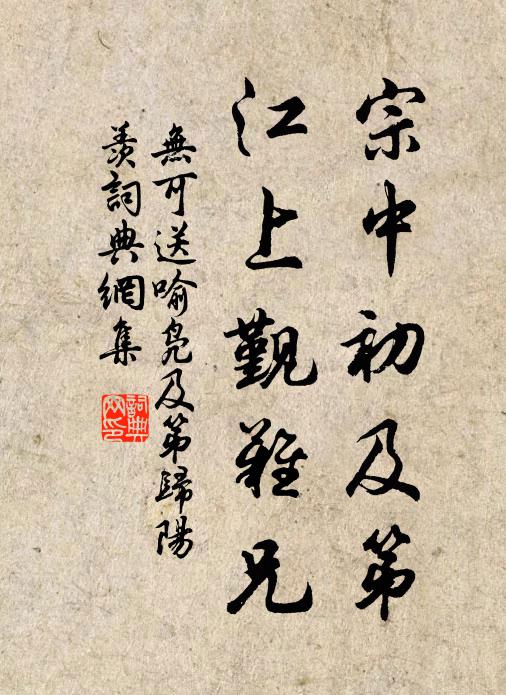 宗中初及第
江上覲難兄
無可送喻鳧及第歸陽
羨詞典網集
詞典
网印